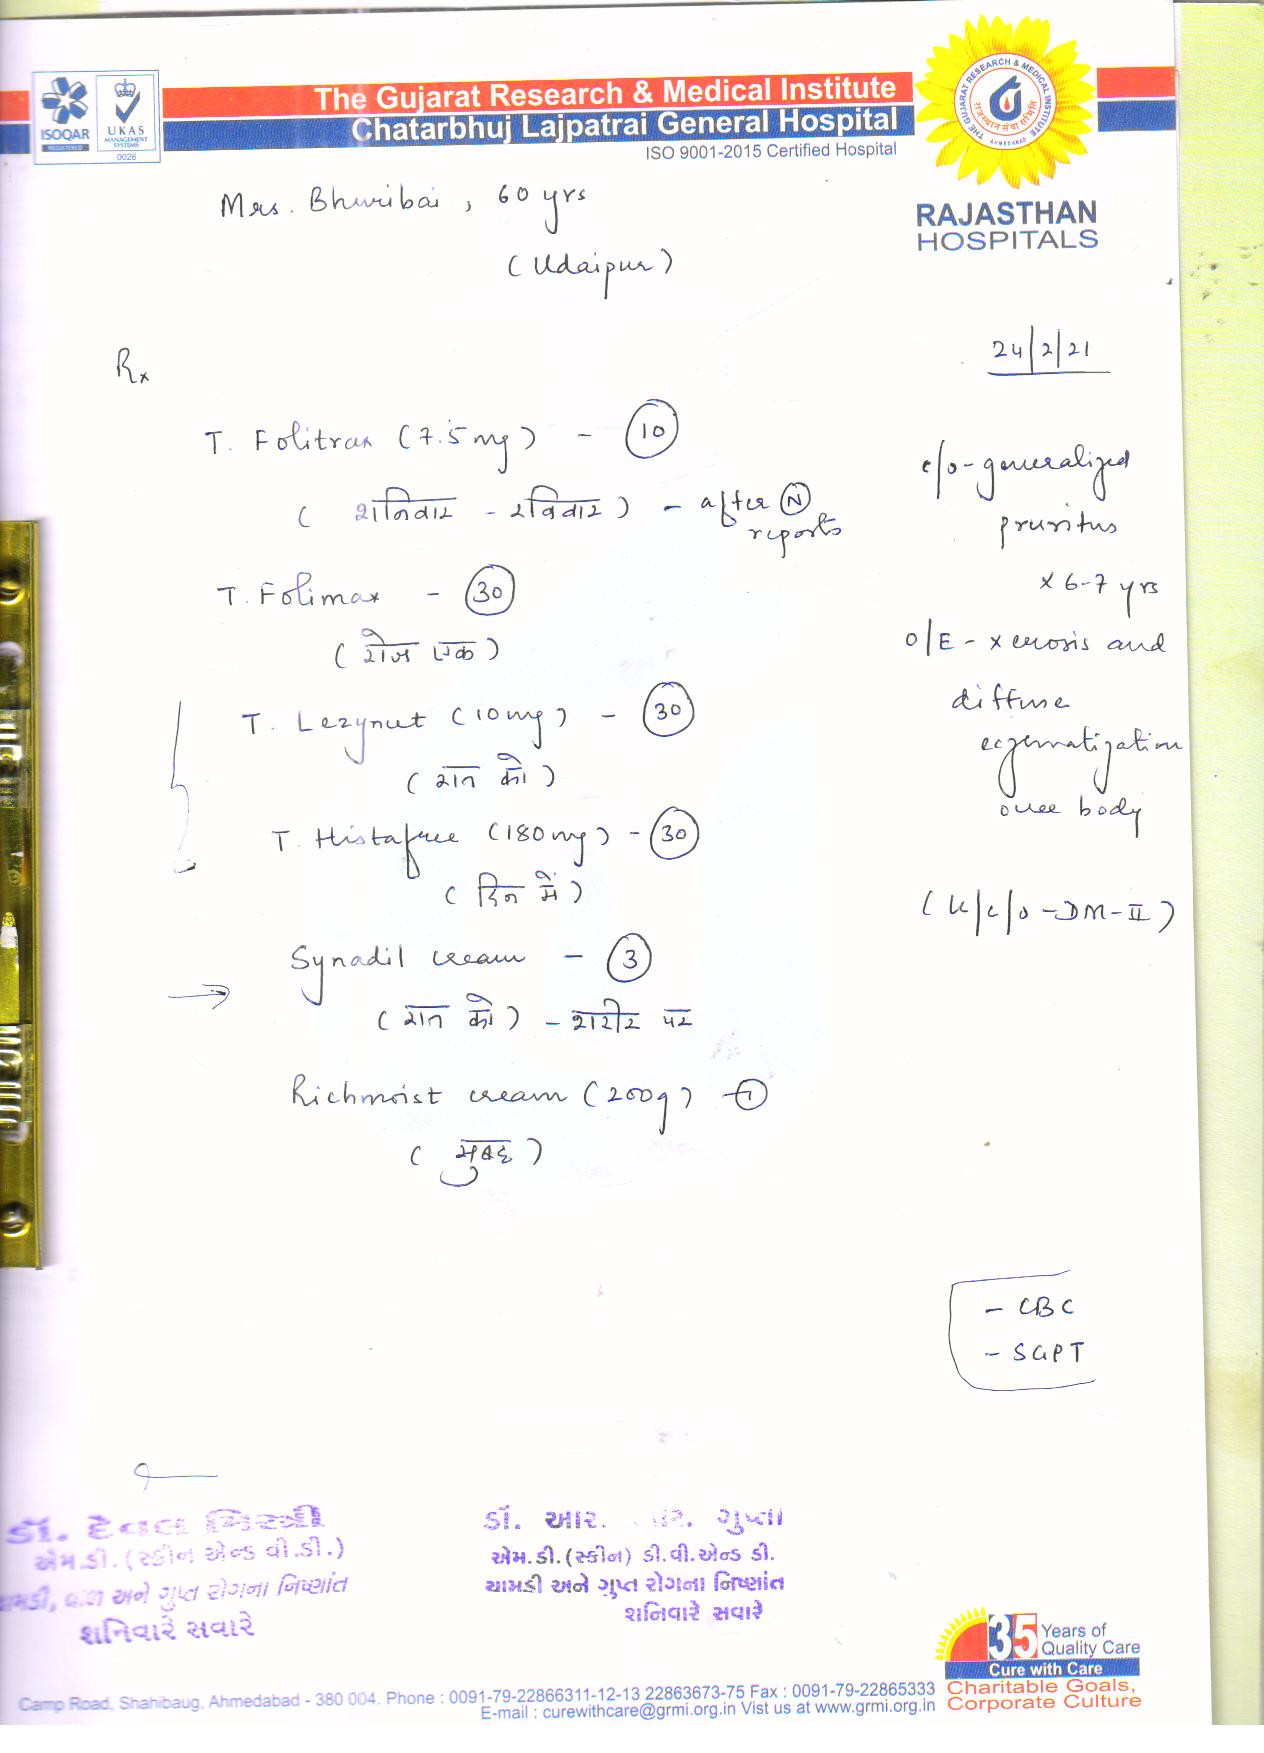 ISOQAR
REGISTERED
UKAS
MANAGEMENT
SYSTEMS
0026
The Gujarat Research & Medical Institute
Chatarbhuj Lajpatrai General Hospital
ISO 9001-2015 Certified Hospital
THE GUJARAT RESEARCH & MEDICAL INSTITUTE
राजस्थान सेवा समिति
AHMEDABAD
RAJASTHAN
HOSPITALS
Mrs. Bhuribai, 60 yrs
(Udaipur)
24/2/21
Rx
T. Folitrax (7.5mg) - 10
(शनिवार - रविवार) - after N
reports
T. Folimax - 30
(रोज एक)
T. Lezynut (10mg) - 30
(रात को)
T. Histafree (180mg) - 30
(दिन में)
Synadil cream - 3
(रात को) - शरीर पर
Richmoist cream (200g) - 1
(सुबह)
c/o - generalized
pruritus
x 6-7 yrs
O/E - xerosis and
diffuse
eczematization
over body
(K/c/o - DM-II)
- CBC
- SGPT
ડૉ. દેવલ મિસ્ત્રી
એમ.ડી. (સ્કીન એન્ડ વી.ડી.)
ચામડી, વાળ અને ગુપ્ત રોગના નિષ્ણાંત
શનિવારે સવારે
ડૉ. આર. આર. ગુપ્તા
એમ.ડી. (સ્કીન) ડી.વી.એન્ડ ડી.
ચામડી અને ગુપ્ત રોગના નિષ્ણાંત
શનિવારે સવારે
35 Years of
Quality Care
Cure with Care
Charitable Goals,
Corporate Culture
Camp Road, Shahibaug, Ahmedabad - 380 004. Phone : 0091-79-22866311-12-13 22863673-75 Fax : 0091-79-22865333
E-mail : curewithcare@grmi.org.in Vist us at www.grmi.org.in